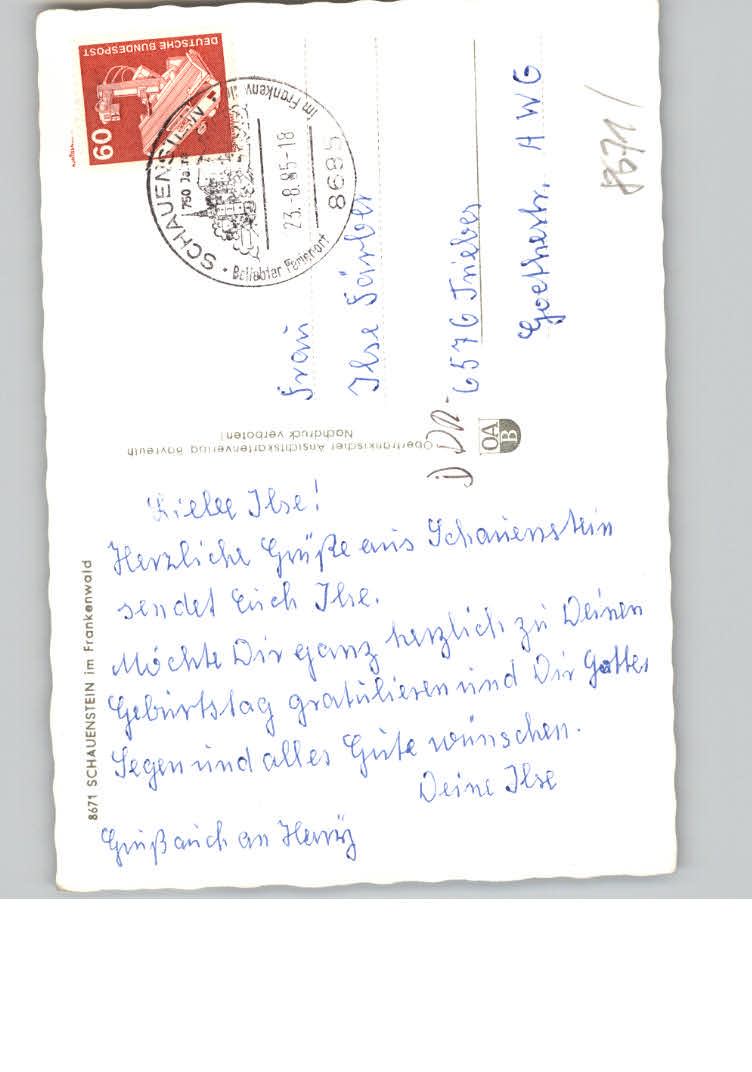 Liebe Ilse!
Herzliche Grüße aus Schauenstein
sendet Euch Ilse.
Möchte Dir ganz herzlich zu Deinen
Geburtstag gratulieren und Dir Gottes
Segen und alles Gute wünschen.
Deine Ilse
Gruß auch an
8671 SCHAUENSTEIN im Frankenwald
Oberfränkischer Ansichtskartenverlag Bayreuth
Nachdruck verboten!
OA
B
DDR-
Frau
Ilse Färber
6576 Triebes
Goethestr. AWG
8671/
DEUTSCHE BUNDESPOST
60
SCHAUENSTEIN
im Frankenwald
750 Jahre
23.-8.85-18
8685
Beliebter Ferienort